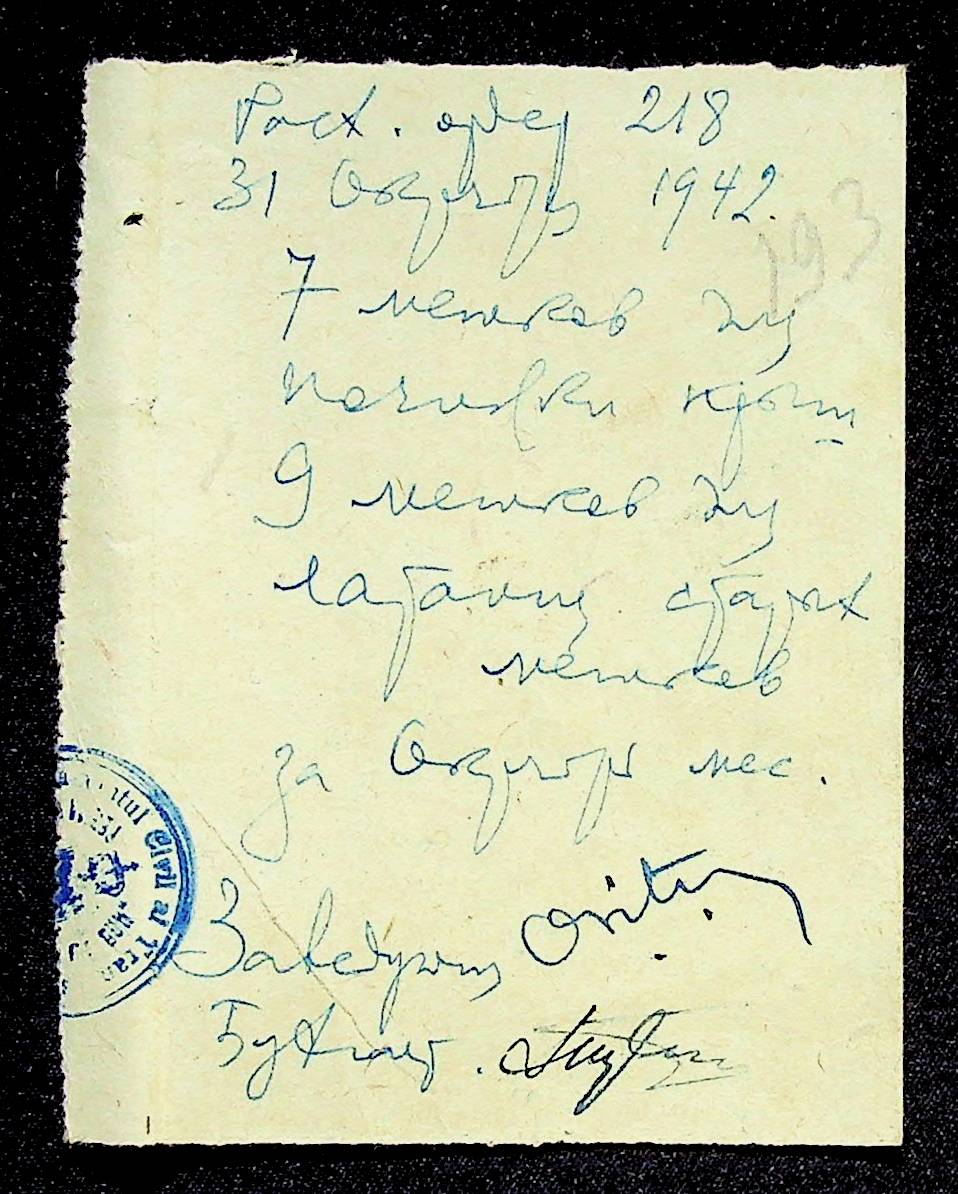 Расх. ордер 218
31 Октября 1942.
193
7 мешков для
починки крыш
9 мешков для
латания старых
мешков
за Октябрь мес.
Заведующ
Бухгалт.
Civil al Tran